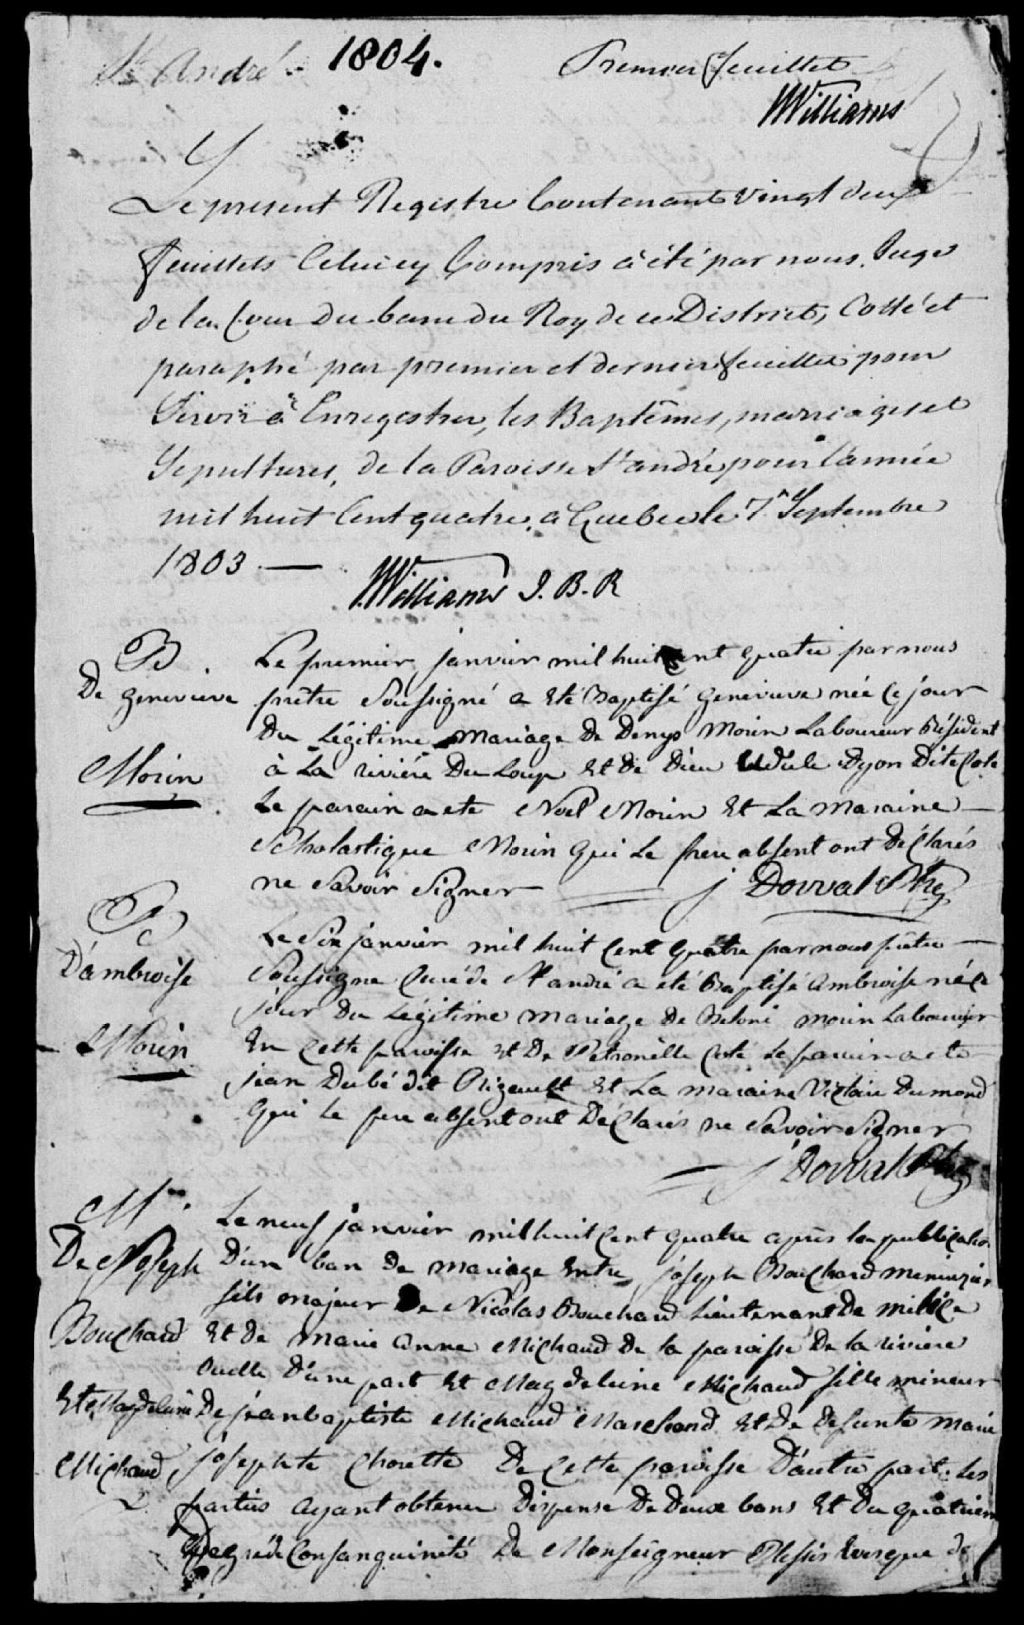 St André 1804. Premier feuillet
WWilliams
Le present Registre Contenant vingt deux
feuillets Celuicy Compris à été par nous Juge
de la Cour du banc du Roy de ce District, Cotté et
paraphé par premier et dernier feuillet pour
Servir à Enregistrer, les Baptêmes, mariages et
Sepultures, de la Paroisse St andré pour l'année
mil huit Cent quatre. à Quebec le 7. Septembre
1803 —
WWilliams J. B. R
B
De genevieve
Morin
Le premier janvier mil huit cent quatre par nous
prêtre Soussigné a Eté Baptisé genevieve née Ce jour
Du Légitime mariage De Denys Morin Laboureur Résident
à La rivière Du Loup Et De Dieu Udule Dyon Dite
Le parain a ete Noel Morin Et La Maraine —
Scholastique Morin qui Le pere absent ont Déclarés
ne Savoir Signer j Dorval Ptre
D'ambroise
Morin
Le Six janvier mil huit Cent quatre par nous prêtre —
Soussigné Curé de St andré a eté Baptisé Ambroise né Ce
jour Du Légitime mariage De Beloni morin Laboureur
En Cette paroisse Et De Petronille Coté Le parain a ete
jean Dubé dit Et La Maraine Victoire Dumond
qui Le pere absent ont Declarés ne Savoir Signer
j Dorval Ptre
M.
De Joseph
Bouchard
Et Magdeleine
Michaud
Le neuf janvier mil huit Cent quatre après la publication
D'un ban De mariage Entre joseph Bouchard menuzier
fils majeur De Nicolas Bouchard Lieutenant De milice
Et De marie anne Michaud De la paroisse De la riviere
Ouelle D'une part Et Magdeleine Michaud fille mineur
De jean baptiste Michaud Marchand Et De Defunte marie
josephte Chorette De Cette paroisse D'autre part: Les
parties ayant obtenu Dispense De Deux bans Et Du quatrieme
Degré de Consanguinité De Monseigneur Plessis Evêque de